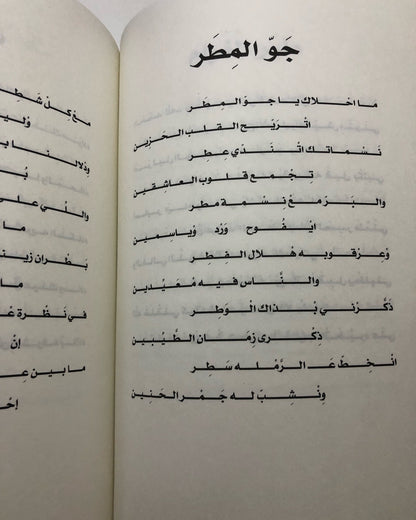 جَوّ المِطَر
ما احْلاك يا جَوّ المِطَر
اتْرَيّح القلب الحَزين
نَسْماتك اتْنَدّي عِطِر
تِجَمع قلوب العاشقين
والبَرّ مَعْ نِسْمة مطر
ايْفُوح وَرْد وْياسِمين
وْعرْقوبه هْلال الفِطِر
والنَّاس فيه مْعَيْدين
ذَكَّرْتني بْذاك الْوَطِر
ذِكْرى زمَان الطَّيْبين
انْخطّ عَـ الرَّمْله سَطِر
وِنْشِبّ له جَمْر الحَنين
مَعْ كِلّ شَطِر
وْليـ
وِذلالنا بـ
بُـ
واللّي على
ما
بَطْران زينـ
ما
في نَظْرة عَـ
إنْ
ما بين عِـ
إحْـ